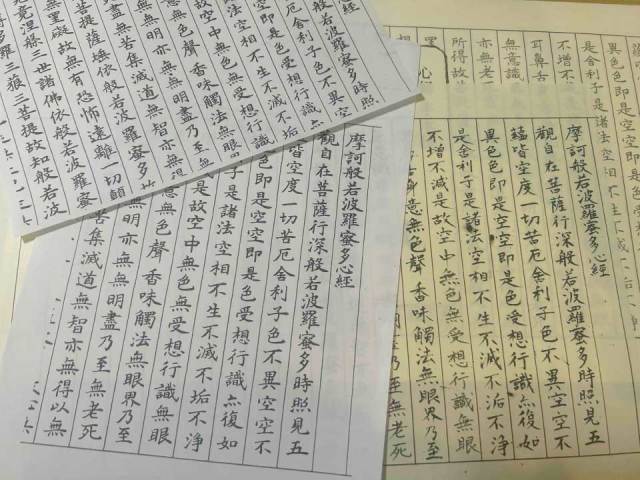 異色色即是空空即是色受
是舍利子是諸法空相不生不
不增不
耳鼻舌
無意識
亦無老
所得故
心
摩訶般若波羅蜜多心經
觀自在菩薩行深般若波羅蜜多時照見五
蘊皆空度一切苦厄舍利子色不異空空不
異色色即是空空即是色受想行識亦復如
是舍利子是諸法空相不生不滅不垢不淨
不增不減是故空中無色無受想行識無眼
意無色聲香味觸法無眼界乃至
乃至無老死
心經
波羅蜜多時照
苦厄舍利子色不異空
空空即是色受想行識亦
諸法空相不生不滅不垢
故空中無色無受想行識
無色聲香味觸法無眼
無明亦無無明盡乃至
無苦集滅道無智亦無得
菩提薩埵依般若波羅蜜多
無罣礙故無有恐怖遠離一切顛
究竟涅槃三世諸佛依般若波羅蜜
多羅三藐三菩提故知般若波
摩訶般若波羅蜜多心經
觀自在菩薩行深般若波羅蜜多時照見五
皆空度一切苦厄舍利子色不異空空不
色即是空空即是色受想行識亦復如
子是諸法空相不生不滅不垢不淨
是故空中無色無受想行識無眼
意無色聲香味觸法無眼界乃至
無明亦無無明盡乃至無老死
苦集滅道無智亦無得以無